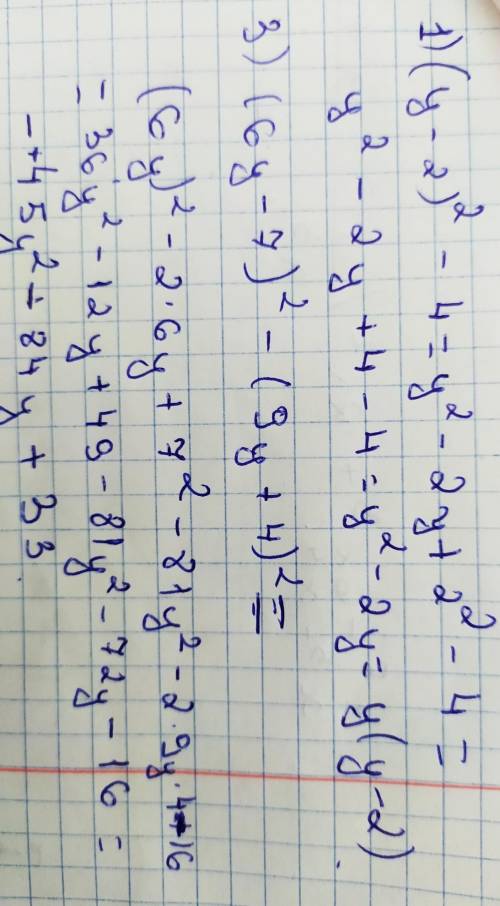 1) (y - 2)² - 4 = y² - 2y + 2² - 4 =
y² - 2y + 4 - 4 = y² - 2y = y(y - 2)
3) (6y - 7)² - (9y + 4)² =
(6y)² - 2·6y + 7² - 81y² - 2·9y·4 - 16
= 36y² - 12y + 49 - 81y² - 72y - 16 =
- 45y² - 84y + 33.